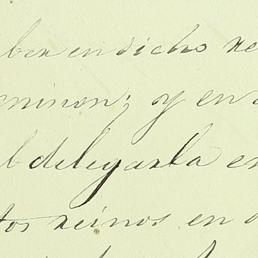 ber en dicho re
eminon; y en
b delegarla en
tos reinos en